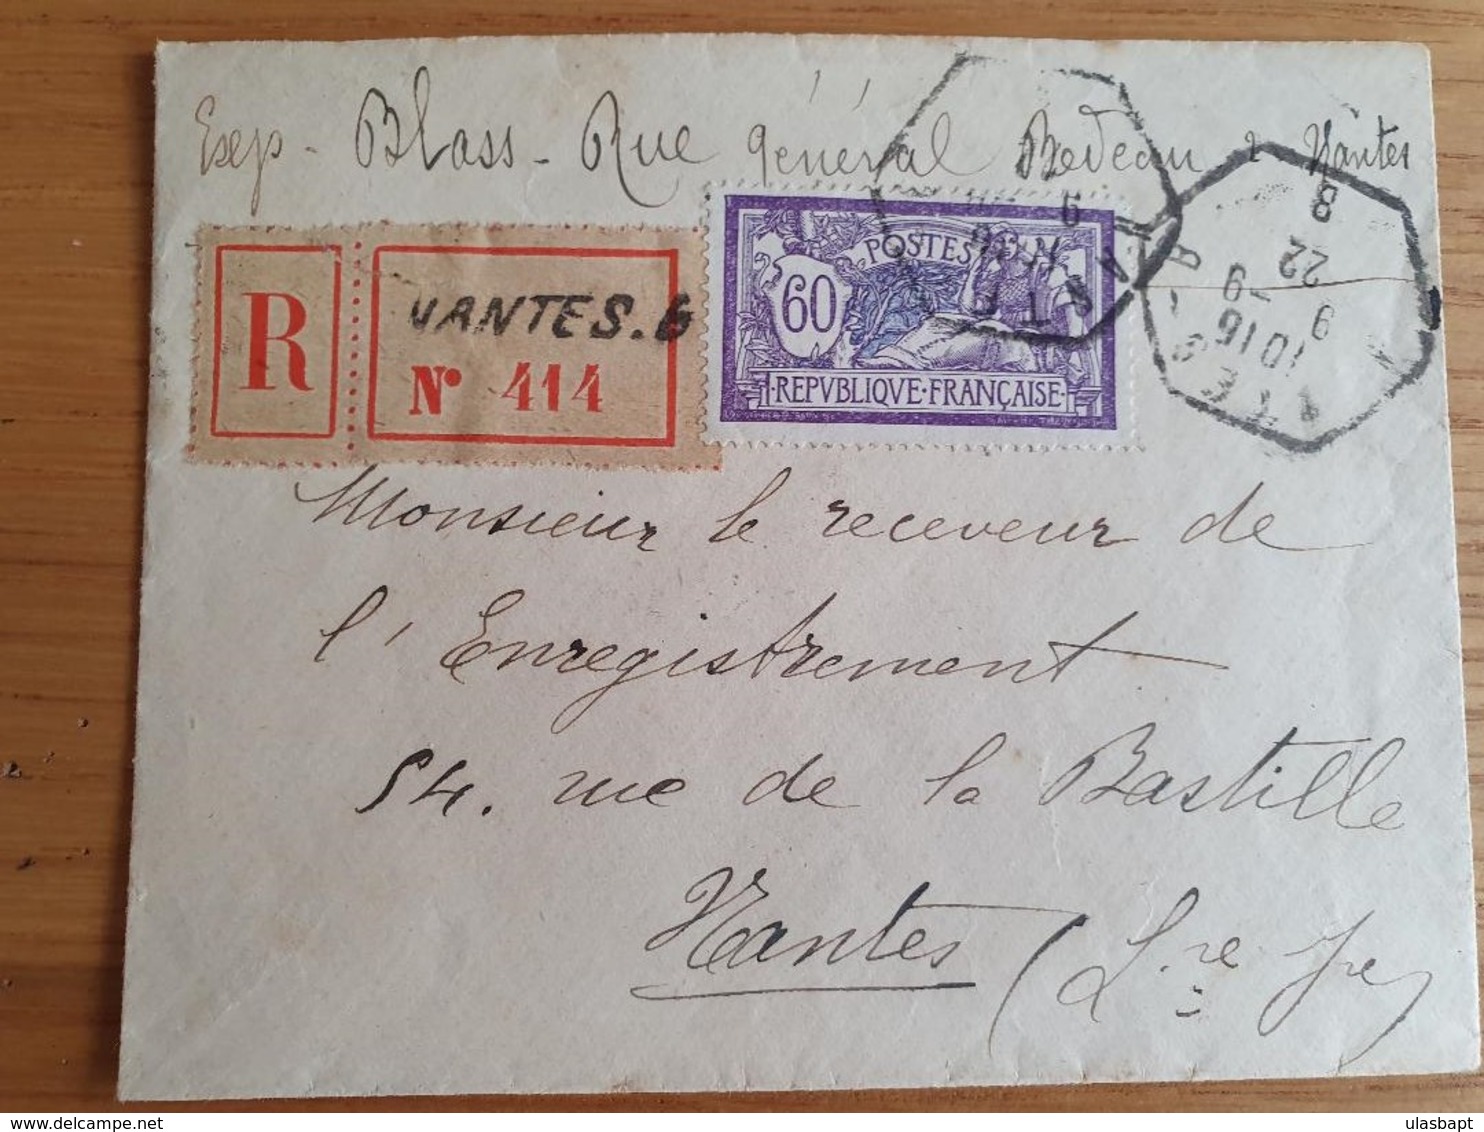 Exp - Blass - Rue général Bedeau 2 Nantes
R
NANTES.6
N° 414
60
POSTES
REPVBLIQVE·FRANÇAISE
10 16
9 -9
22
8
Monsieur le receveur de
l'Enregistrement
54. rue de la Bastille
Nantes (L.re Jre)
delcampe.net
ulasbapt